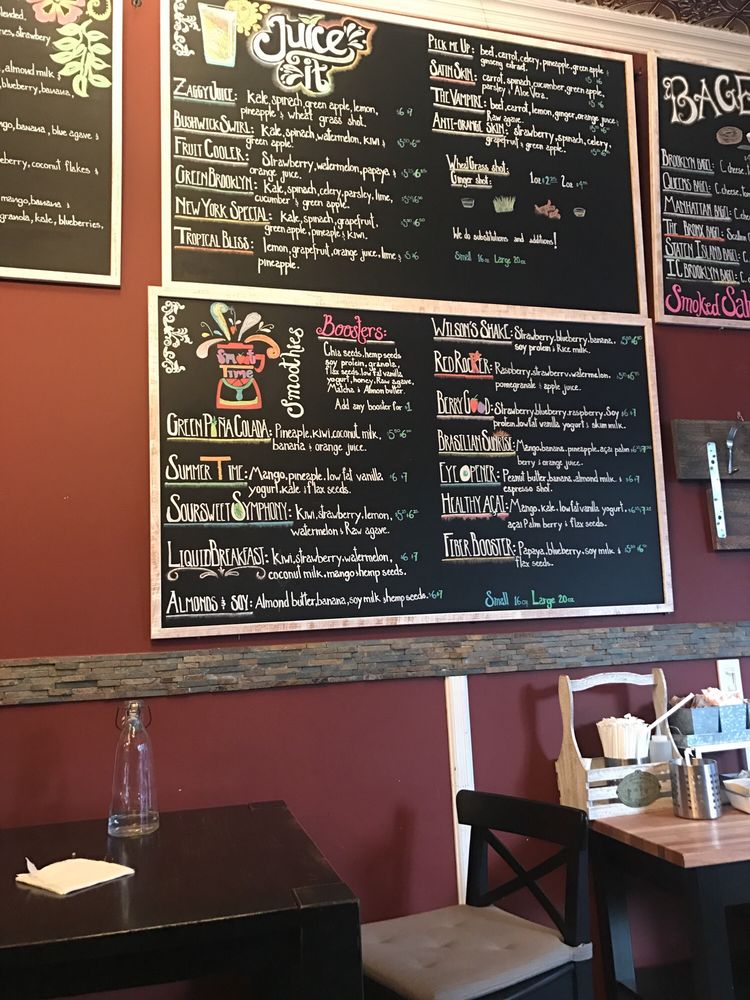 blended,
nes, strawbery
, almond milk &
blueberry, banana,
ngo, banana, blue agave &
eberry, coconut flakes &
mango, banana &
granola, kale, blueberries,
Juice it
ZAGGY JUICE: Kale, spinach, green apple, lemon,
pineapple & wheat grass shot. $6 $7
BUSHWICK SWIRL: Kale, spinach, watermelon, kiwi &
green apple.
FRUIT COOLER: Strawberry, watermelon, papaya &
orange juice.
GREEN BROOKLYN: Kale, spinach, celery, parsley, lime,
cucumber & green apple.
NEW YORK SPECIAL: Kale, spinach, grapefruit,
green apple, pineaple & kiwi.
TROPICAL BLISS: lemon, grapefruit, orange juice, lime &
pineapple.
PICK ME UP: beed, carrot, celery, pineapple, green apple &
ginseng extract.
SATIN SKIN: carrot, spinach, cucumber, green apple,
parsley & Aloe Vera.
THE VAMPIRE: beed, carrot, lemon, ginger, orange juice &
Raw agave.
ANTI-ORANGE SKIN: strawberry, spinach, celery,
grapefruit & green apple.
WheatGrass shot:
Ginger shot: 1oz 2oz
We do substitutions and additions!
Small 16 oz Large 20oz
BAGE
BROOKLYN BAGEL: C. cheese,
QUEENS BAGEL: C. cheese, Tom
MANHATTAM BAGEL: C. c
THE BRONX BAGEL: Scallion C
STATEN ISLAND BAGEL: C.
I.C BROOKLYN BAGEL: C. c
Smoked Sal
Smooth Time
Smoothies
Boosters:
Chia seeds, hemp seeds
soy protein, granola,
flax seeds, low fat vanilla
yogurt, honey, Raw agave,
Matcha & Almon butter.
Add any booster for $1
GREEN PIÑA COLADA: Pineapple, kiwi, coconut milk,
banana & orange juice.
SUMMER TIME: Mango, pineapple, low fat vanilla $6 $7
yogurt, kale & flax seeds.
SOURSWEET SYMPHONY: Kiwi, strawberry, lemon,
watermelon & Raw agave.
LIQUID BREAKFAST: Kiwi, strawberry, watermelon, $6 $7
coconut milk, mango & hemp seeds.
ALMONDS & SOY: Almond butter, banana, soy milk & hemp seeds. $6 $7
WILSON'S SHAKE: Strawberry, blueberry, banana,
soy protein & Rice milk.
RED ROCKER: Raspberry, strawberry, watermelon,
pomegranate & apple juice.
BERRY GOOD: Strawberry, blueberry, raspberry, Soy $6 $7
protein, low fat vanilla yogurt & skim milk.
BRASILIAN SUNRISE: Mango, banana, pineapple, açai palm
berry & orange juice.
EYE OPENER: Peanut butter, banana, almond milk & $6 $7
espresso shot.
HEALTHY AÇAI: Mango, kale, low fat vanilla yogurt,
açai Palm berry & flax seeds.
FIBER BOOSTER: Papaya, blueberry, soy milk &
flax seeds.
Small 16 oz Large 20oz